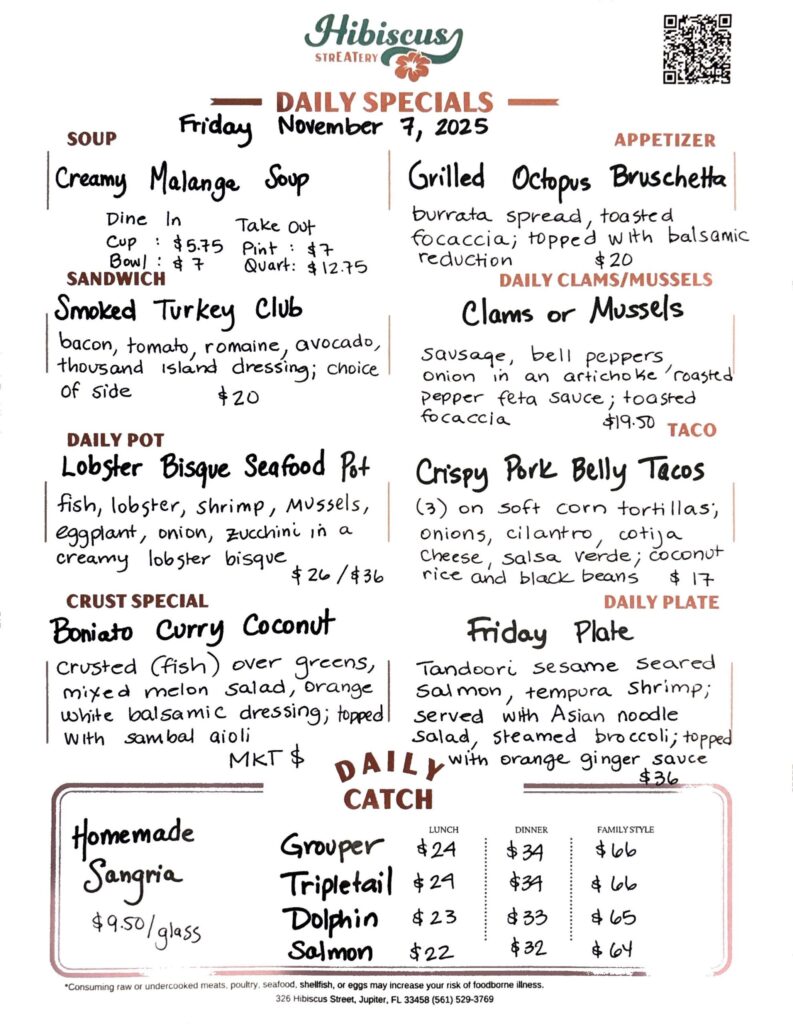 Hibiscus
STREATERY
DAILY SPECIALS
Friday November 7, 2025
SOUP
Creamy Malanga Soup
Dine In
Cup : $5.75
Bowl : $7
Take Out
Pint : $7
Quart: $12.75
APPETIZER
Grilled Octopus Bruschetta
burrata spread, toasted
focaccia; topped with balsamic
reduction $20
SANDWICH
Smoked Turkey Club
bacon, tomato, romaine, avocado,
thousand island dressing; choice
of side $20
DAILY CLAMS/MUSSELS
Clams or Mussels
sausage, bell peppers
onion in an artichoke roasted
pepper feta sauce; toasted
focaccia $19.50
DAILY POT
Lobster Bisque Seafood Pot
fish, lobster, shrimp, mussels,
eggplant, onion, zucchini in a
creamy lobster bisque
$26/$36
TACO
Crispy Pork Belly Tacos
(3) on soft corn tortillas;
onions, cilantro, cotija
cheese, salsa verde; coconut
rice and black beans $17
CRUST SPECIAL
Boniato Curry Coconut
crusted (fish) over greens,
mixed melon salad, orange
white balsamic dressing; topped
with sambal aioli
MKT $
DAILY PLATE
Friday Plate
Tandoori sesame seared
salmon, tempura shrimp;
served with Asian noodle
salad, steamed broccoli; topped
with orange ginger sauce
$36
DAILY
CATCH
Homemade
Sangria
$9.50/glass
LUNCH DINNER FAMILY STYLE
Grouper $24 $34 $66
Tripletail $24 $34 $66
Dolphin $23 $33 $65
Salmon $22 $32 $64
*Consuming raw or undercooked meats, poultry, seafood, shellfish, or eggs may increase your risk of foodborne illness.
326 Hibiscus Street, Jupiter, FL 33458 (561) 529-3769